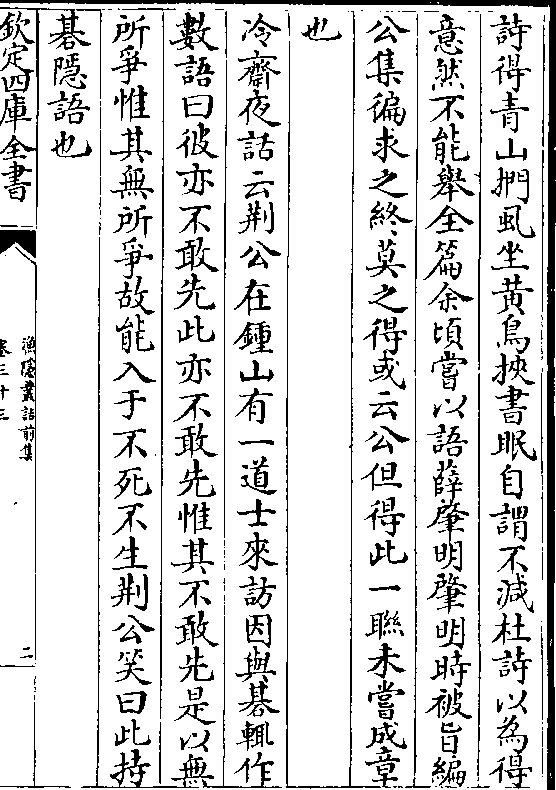 詩得青山捫虱坐黄鳥挾書眠自謂不減杜詩以為得
意然不能舉全篇余頃嘗以語薛肇明肇明時被旨編
公集徧求之終莫之得或云公但得此一聯未嘗成章
也
冷齋夜話云荆公在鍾山有一道士來訪因與碁輒作
數語曰彼亦不敢先此亦不敢先惟其不敢先是以無
所爭惟其無所爭故能入于不死不生荆公笑曰此持
碁隠語也
欽定四庫全書
漁隠叢話前集
卷三十三
二